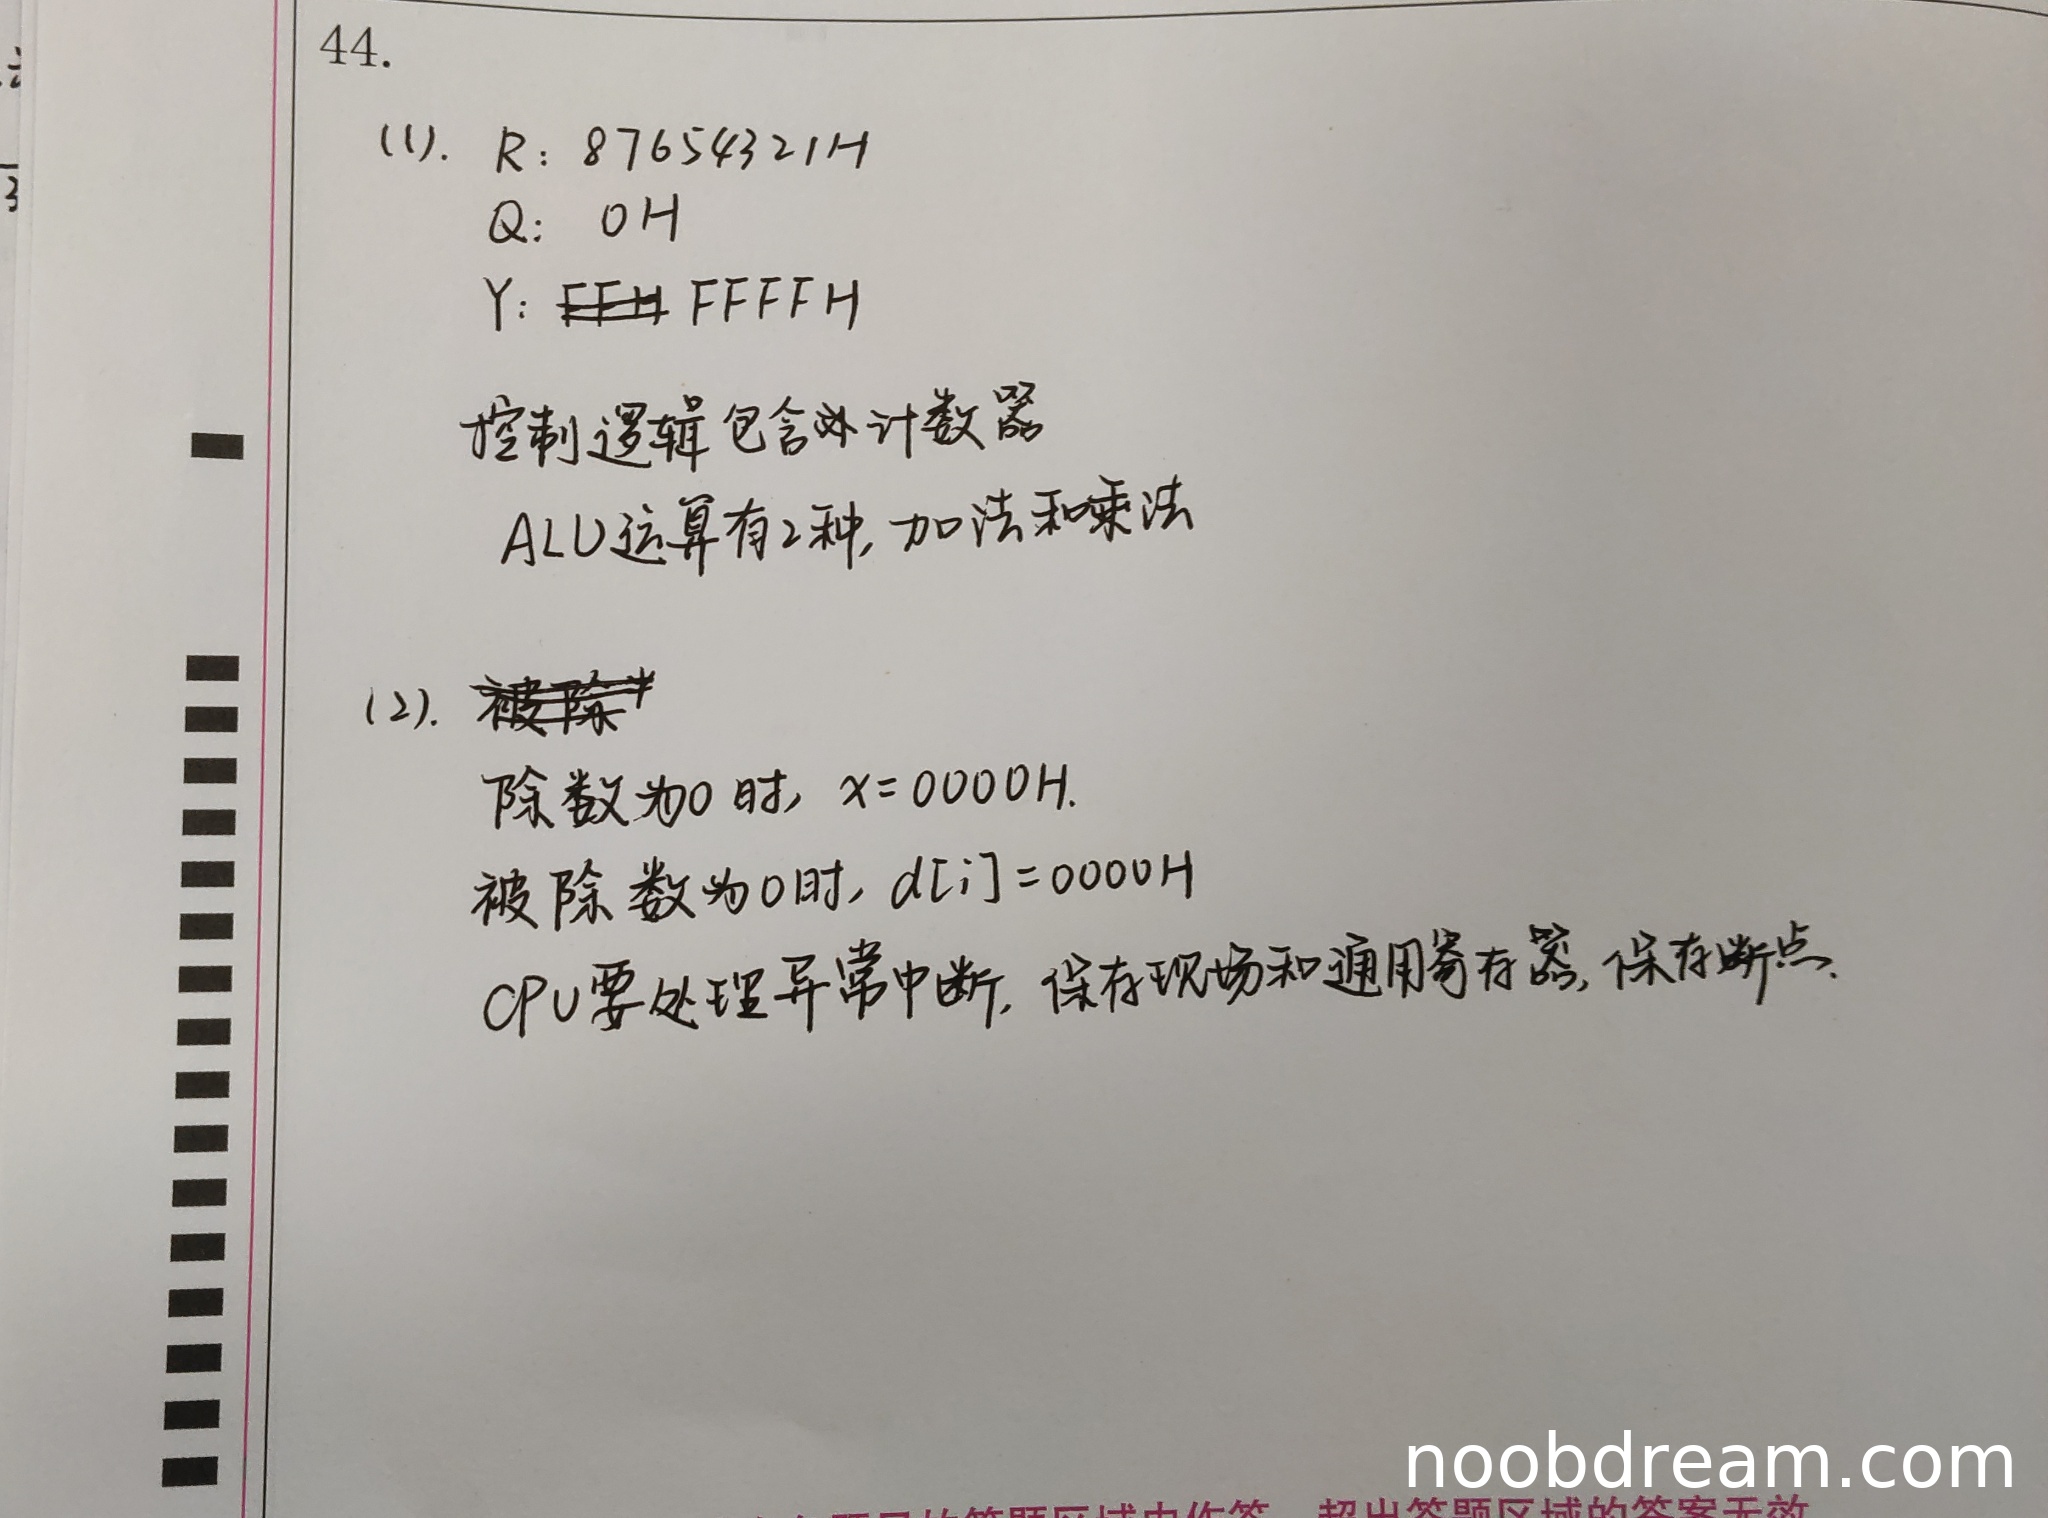 44.
(1). R: 87654321H
Q: 0H
Y: FFH FFFFH
控制逻辑包含计数器
ALU运算有2种, 加法和乘法
(2). 被除
除数为0时, x=0000H.
被除数为0时, d[i]=0000H
CPU要处理异常中断, 保存现场和通用寄存器, 保存断点.
noobdream.com
题目的答题区域内作答, 超出答题区域的答案无效